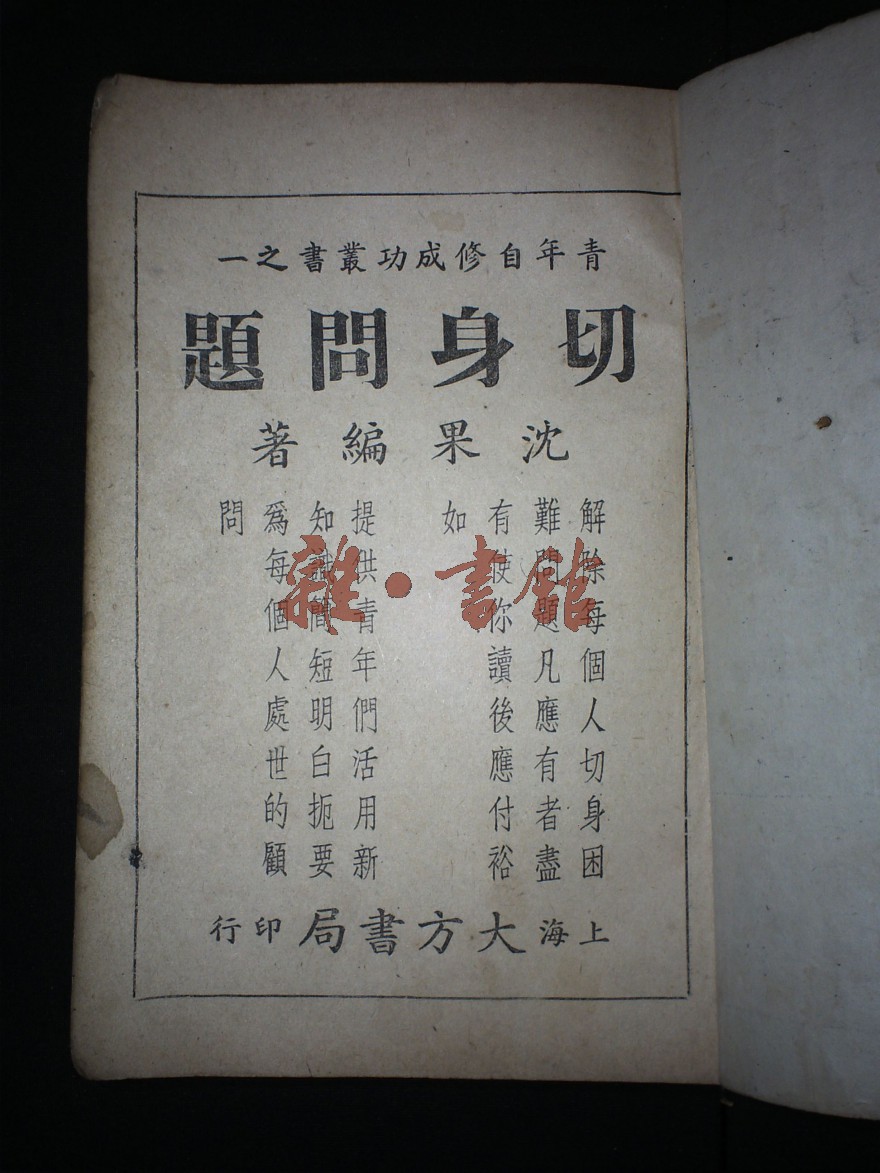 青年自修成功叢書之一
切身問題
沈果編著
解除每個人切身困
難問題凡應有者盡
有使你讀後應付裕
如
提供青年們活用新
知識簡短明白扼要
爲每個人處世的顧
問
上海大方書局印行
雜·書館